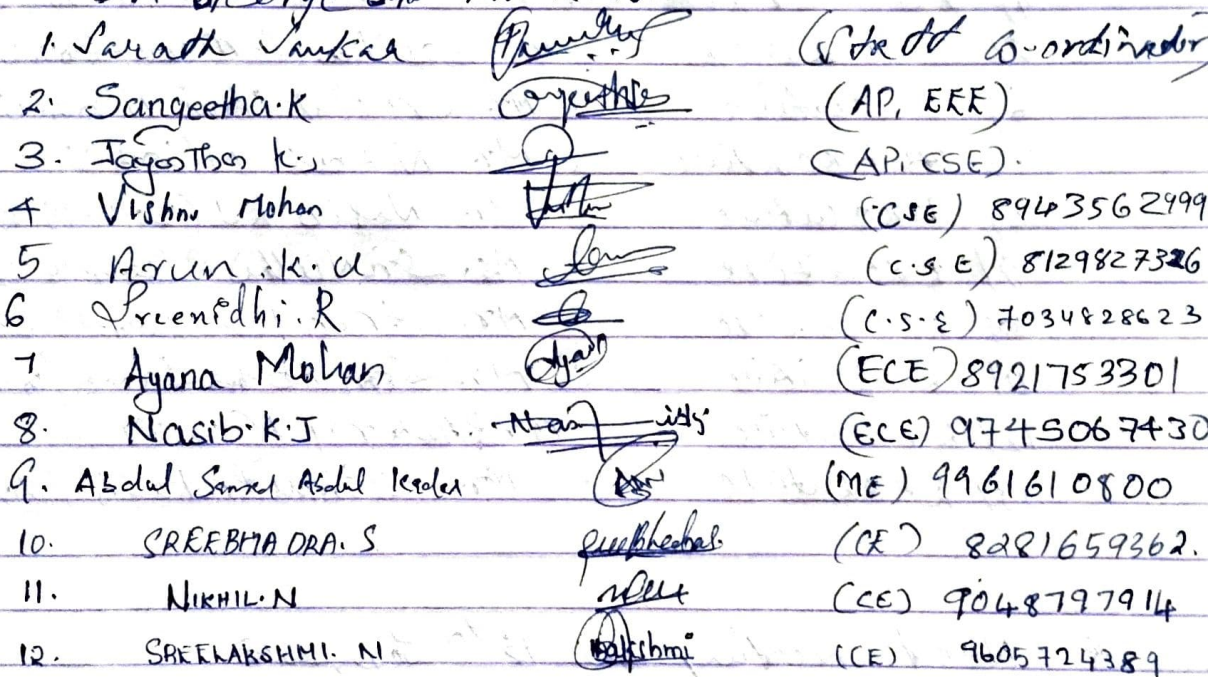 1. Sarath Sankar (Staff Co-ordinator)
2. Sangeetha.K (AP, EEE)
3. K. (AP, CSE).
4 Vishnu Mohan (CSE) 8943562999
5 Arun.K.U (C.S E) 8129827326
6 Sreenidhi.R (C.S.E) 7034828623
7 Ayana Mohan Ayan (ECE) 8921753301
8. Nasib.K.J (ECE) 9745067430
9. Abdul Abdul Kader (ME) 9961610800
10. SREEBHADRA.S (CE) 8281659362.
11. NIKHIL.N (CE) 9048797914
12. SREELAKSHMI. N (CE) 9605724389